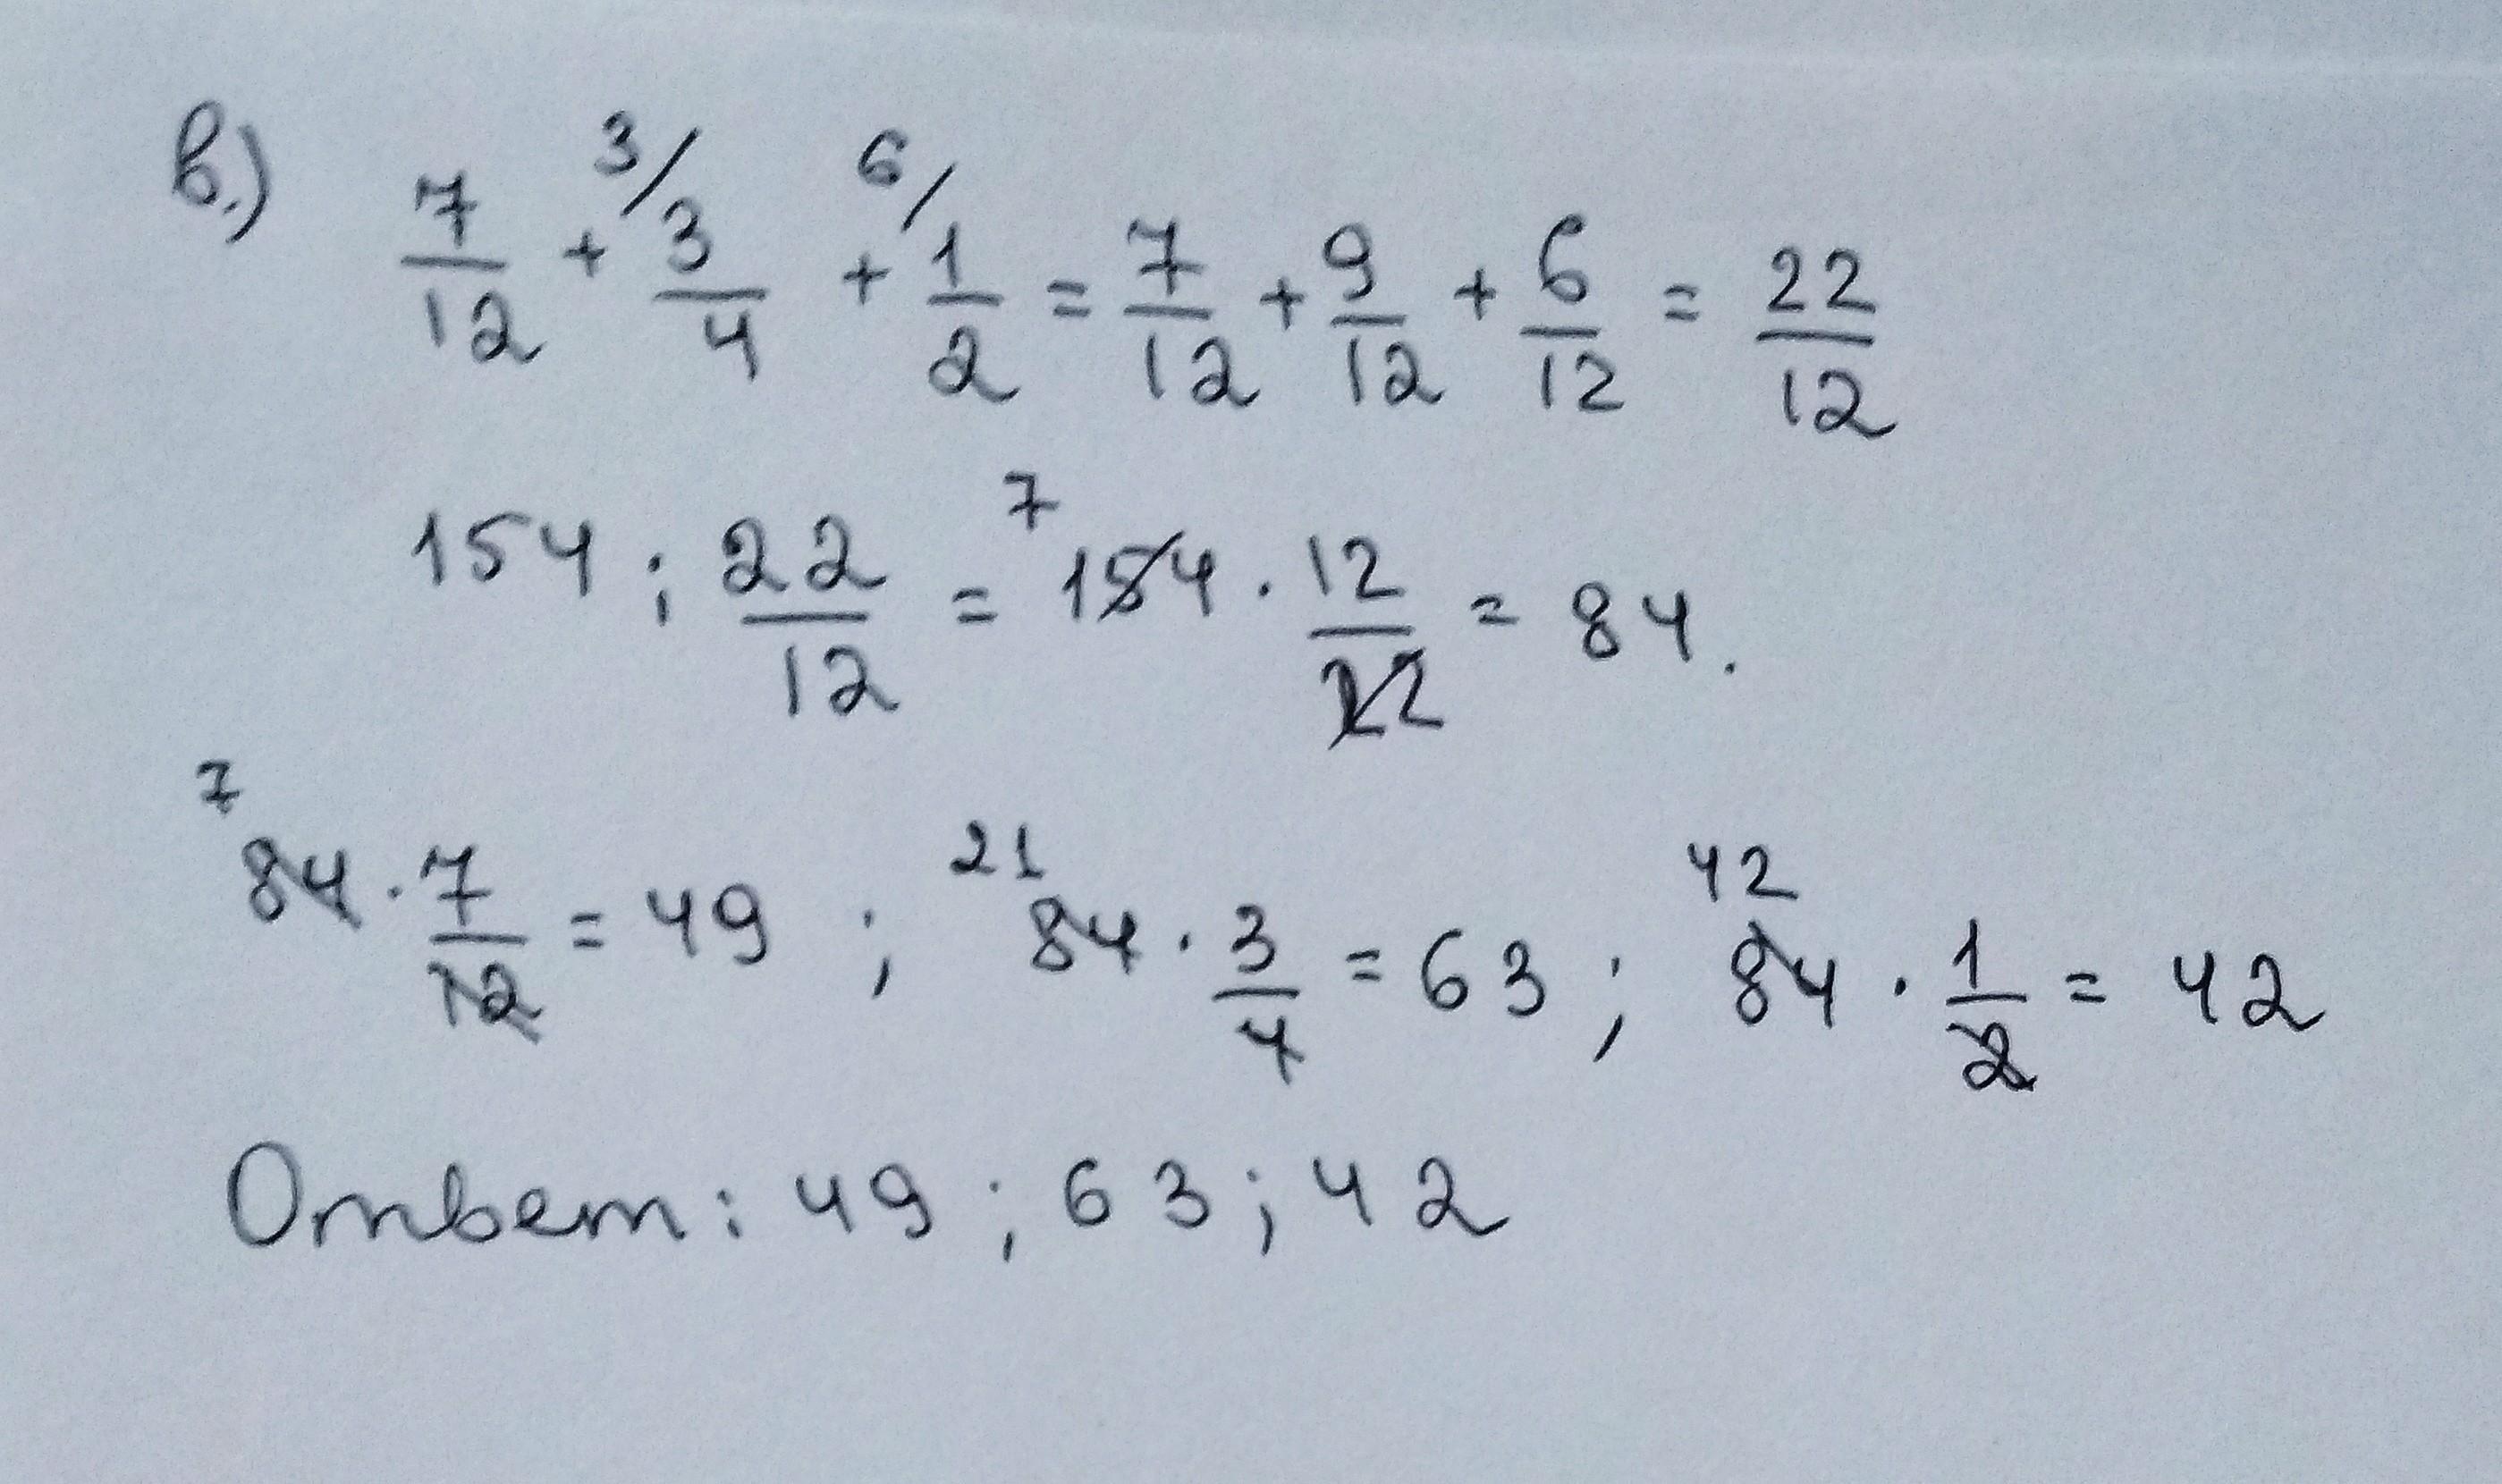 в.) 7/12 + 3/ 3/4 + 6/ 1/2 = 7/12 + 9/12 + 6/12 = 22/12
154 : 22/12 = 7 154 · 12/22 = 84.
7 84 · 7/12 = 49 ; 21 84 · 3/4 = 63 ; 42 84 · 1/2 = 42
Ответ: 49 ; 63 ; 42